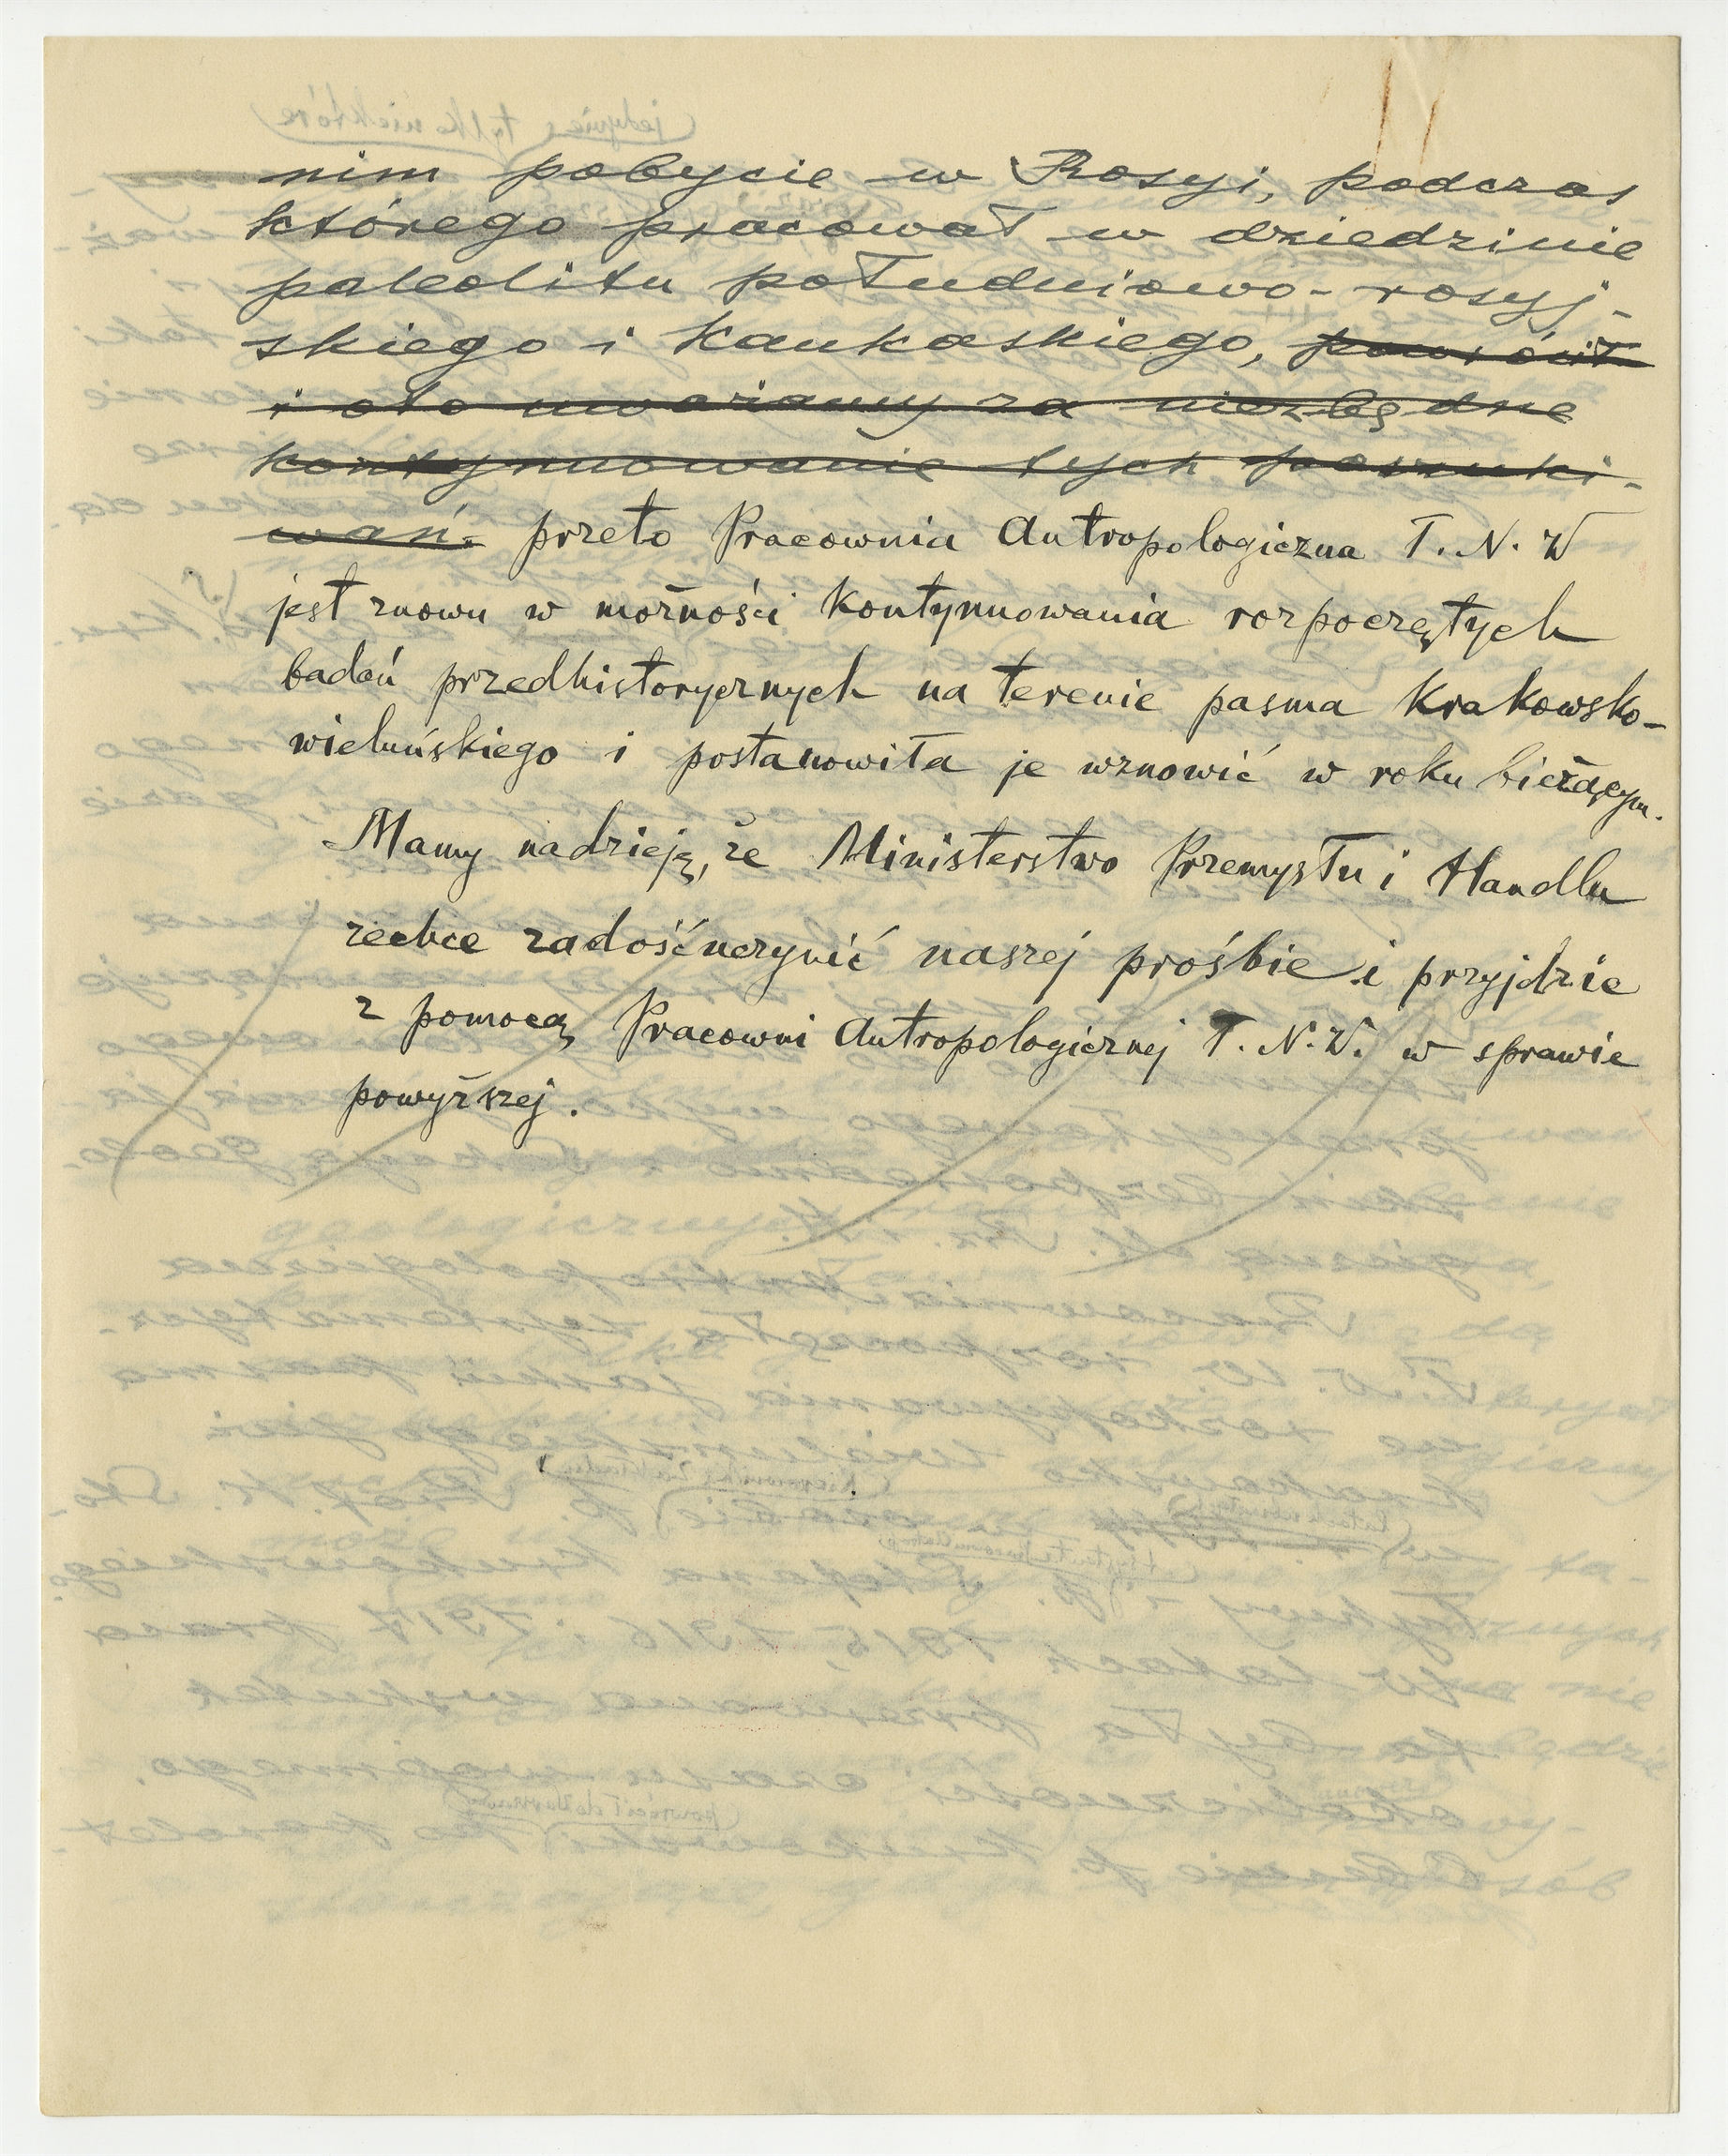 nim pobycie w Rosyi, podczas
którego pracował w dziedzinie
paleolitu południowo-rosyj-
skiego i kaukaskiego, powrócił
i oto uważamy za niezbędne
kontynuowanie tych poszuki-
wań. przeto Pracownia Antropologiczna T. N. W
jest znowu w możności kontynuowania rozpoczętych
badań przedhistorycznych na terenie pasma Krakowsko-
wieluńskiego i postanowiła je wznowić w roku bieżącym.
Mamy nadzieję, że Ministerstwo Przemysłu i Handlu
zechce zadośćuczynić naszej prośbie i przyjdzie
z pomocą Pracowni Antropologicznej T. N. W. w sprawie
powyższej.